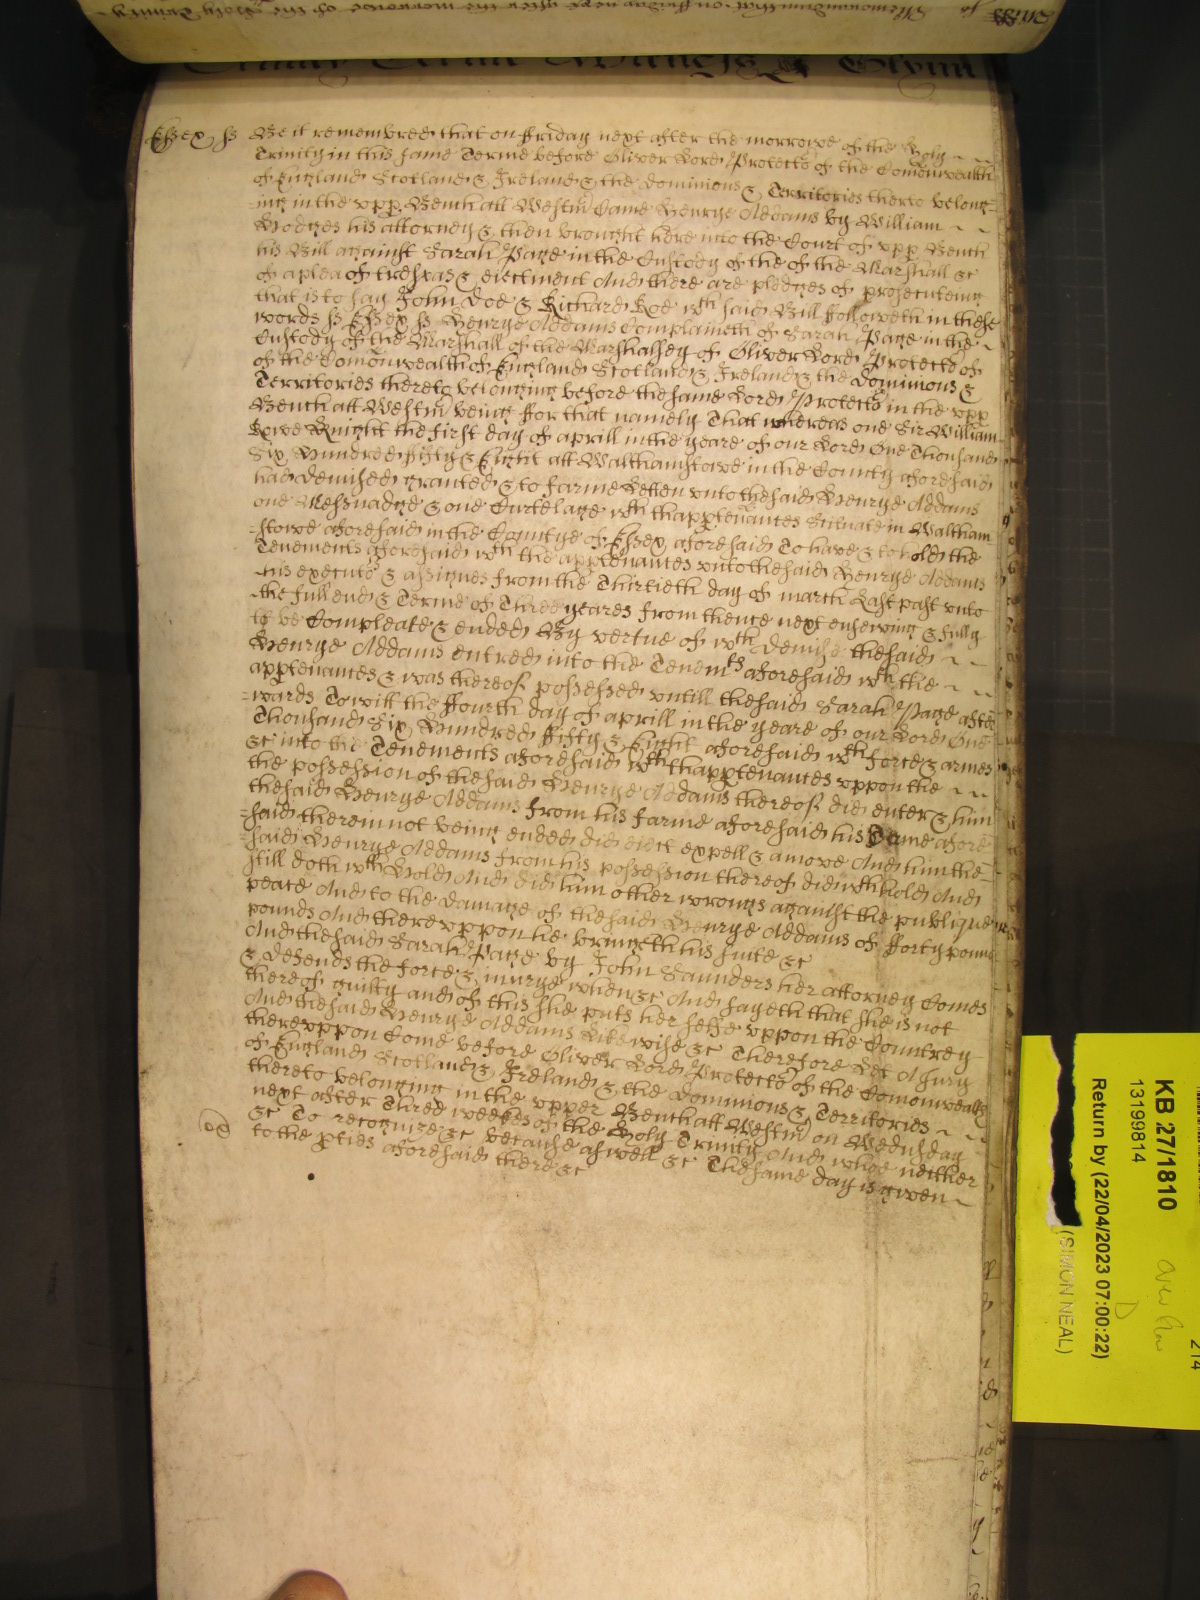 Trinity Terme Glynn
Essex ss Be it remembred that on ffriday next after the morrowe of the holy
Trinity in this same Terme before Oliver Lord Protector of the Comonwealth
of England Scotland & Ireland & the dominions & Territories therto belong=
=ing in the upp Bench att Westm Came George Addams by William
Hodges his attorney & then brought here into the Court of upp Bench
his Bill against Sarah Page in the Custody of the of the Marshall &c
of a plea of trespas & eiectment And there are pledges of prosecuteing
that is to say John Doe & Richard Roe wch said Bill followeth in these
words ss Essex ss George Addams Complaineth of Sarah Page in the
Custody of the Marshall of the Marshalsey of Oliver Lord Protector of
of the Comonwealth of England Scotland & Ireland & the Dominions &
Territories thereto belonging before the same Lord Protector in the upp
Bench att Westm being ffor that namely That whereas one Sir William
Rowe Knight the first day of aprill in the yeare of our Lord One Thousand
Six Hundred fifty & Eight att Walthamstowe in the County aforesaid
had demised granted & to farme Letten unto the said George Addams
one Messuadge & one Curtelage wth thapptenances Scituate in Waltham
=stowe aforesaid in the County of Essex aforesaid To have & to hold the
Tenements aforesaid wth the apptenances unto the said George Addams
his executors & assignes from the Thirtieth day of march Last past unto
the full end & Terme of Three yeares from thence next ensewing & fully
to be Compleate & ended By vertue of wch demise the said
George Addams entred into the Tenemts aforesaid wth the
apptenances & was thereof possessed untill the said Sarah Page after
=wards To witt the ffourth day of aprill in the yeare of our Lord One
Thousand Six Hundred ffifty & Eight aforesaid wth force & armes
&c into the Tenements aforesaid wth thapptenances uppon the
the possession of the said George Addams thereof did enter & him
the said George Addams from his farme aforesaid his Terme afore=
=said therein not being ended did eiect expell & amove And him the
said George Addams from his possession thereof did wthhold And
still doth wthhold And did him other wrongs against the publique
peace And to the damage of the said George Addams of fforty pound
pounds And thereuppon he bringeth his suite &c
And the said Sarah Page by John Saunders her attorney Comes
& defends the force & iniurye when &c And sayeth that she is not
thereof guilty and of this she puts her selfe uppon the Countrey
And the said George Addams Likewise &c Therefore Let A Jury
thereuppon Come before Oliver Lord Protector of the Comonwealth
of England Scotland & Ireland & the Dominions & Territories
thereto belonging in the upper Bench att Westm on Wednsday
next after Three weekes of the Holy Trinity And whoe neither
&c To recognize &c because aswell &c The same day is given
to the pties aforesaid there &c
KB 27/1810
13199814
Return by (22/04/2023 07:00:22)
D
(SIMON NEAL)
214